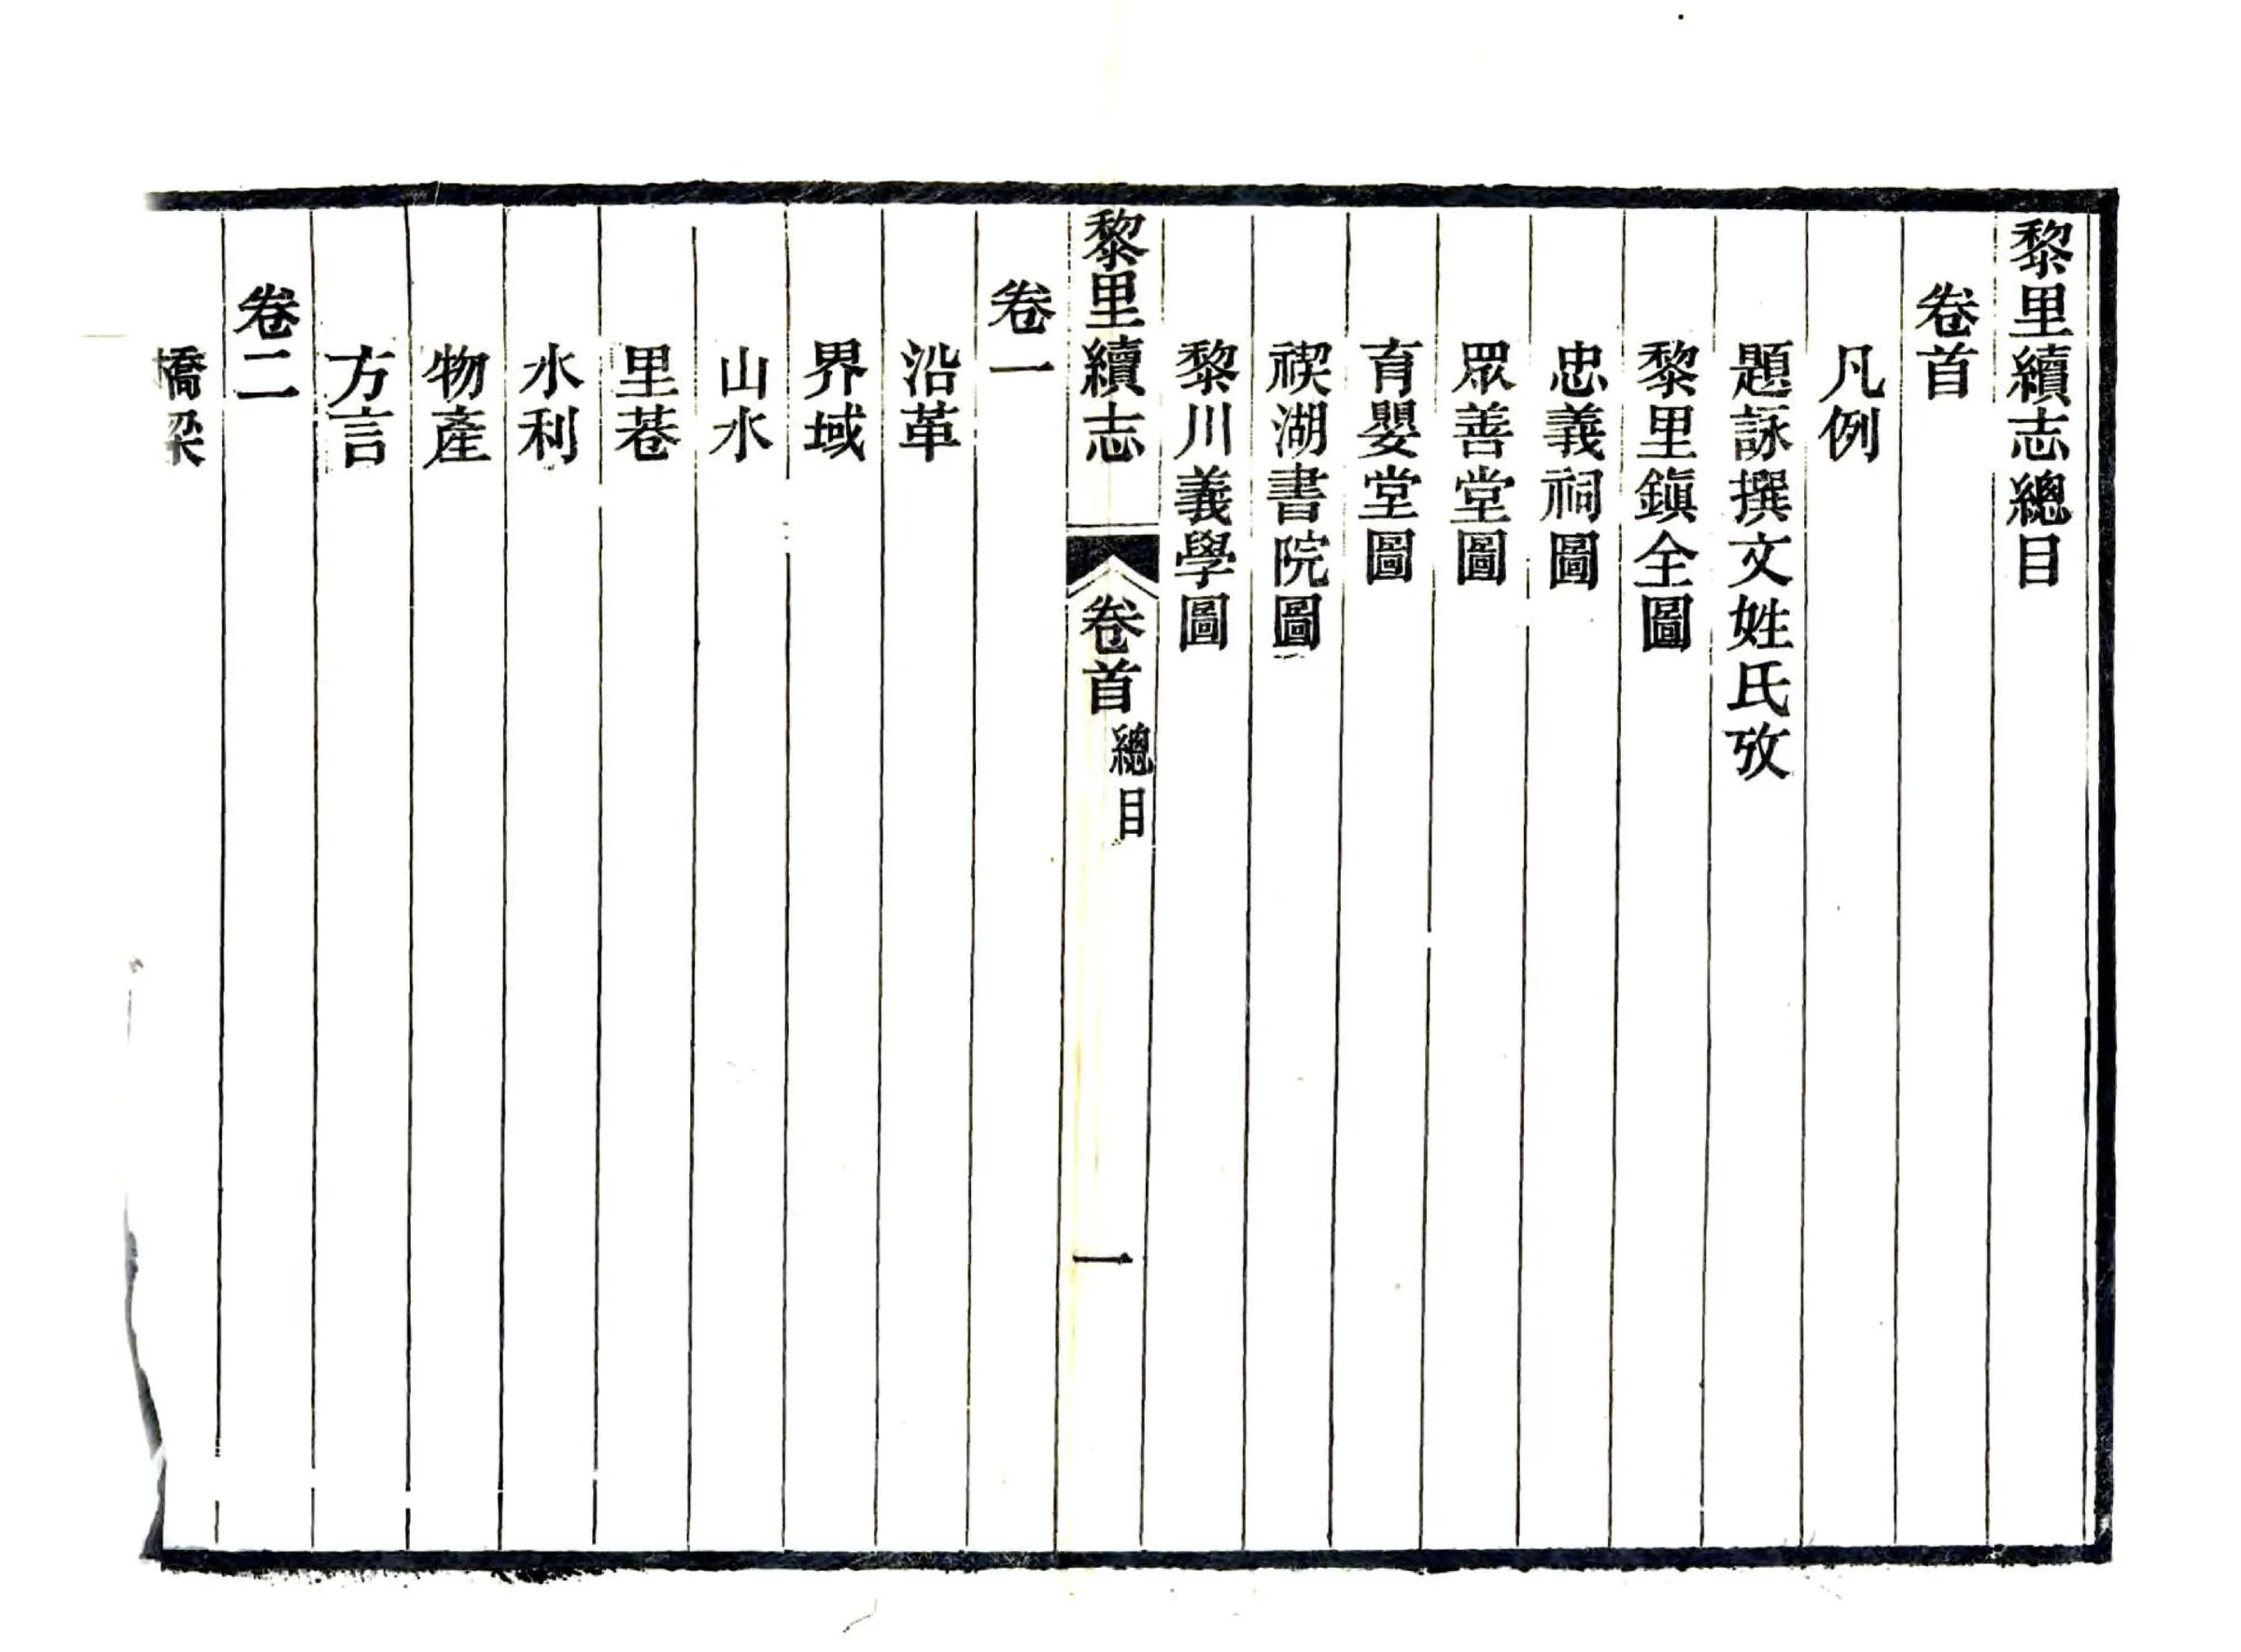 黎里續志總目
卷首
凡例
題詠撰文姓氏攷
黎里鎭全圖
忠義祠圖
眾善堂圖
育嬰堂圖
禊湖書院圖
黎川義學圖
黎里續志 卷首 總目 一
卷一
沿革
界域
山水
里巷
水利
物產
方言
卷二
橋梁